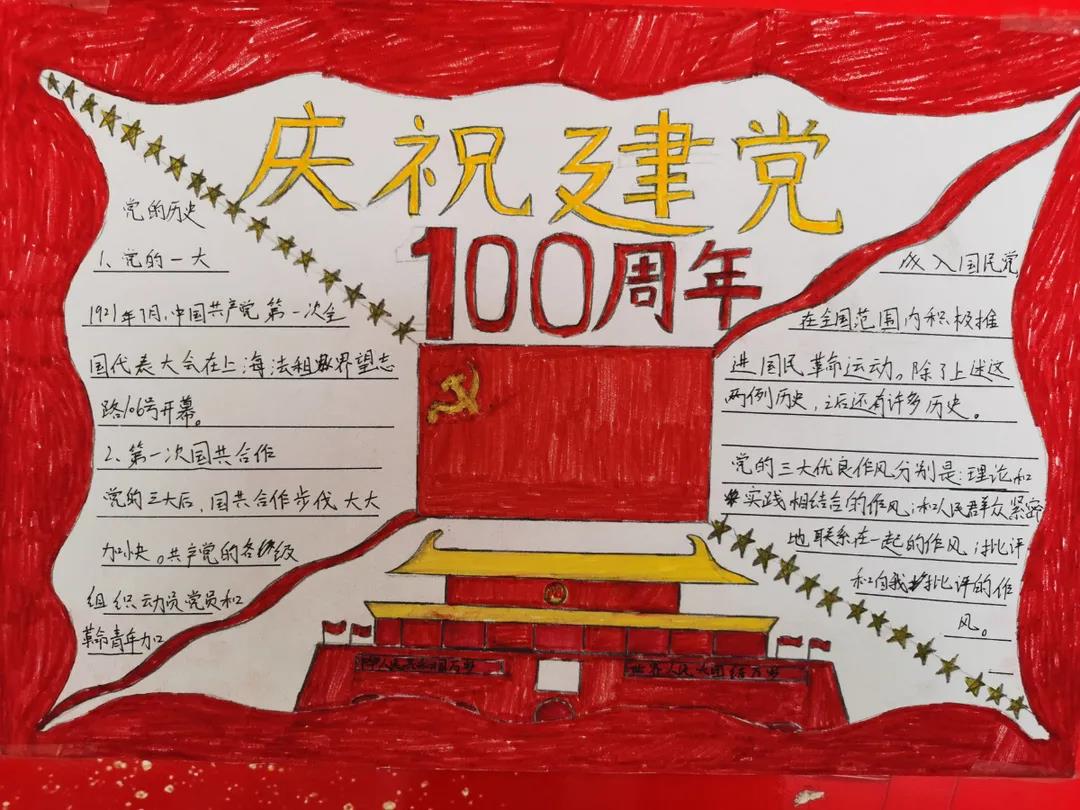 庆祝建党
100周年
党的历史
1、党的一大
1921年7月,中国共产党第一次全
国代表大会在上海法租界望志
路106号开幕。
2、第一次国共合作
党的三大后,国共合作步伐大大
加快。共产党的各级
组织动员党员和
革命青年加
成入国民党
在全国范围内积极推
进国民革命运动。除了上述这
两例历史,之后还有许多历史。
党的三大优良作风分别是:理论和
实践相结合的作风;和人民群众紧密
地联系在一起的作风;批评
和自我批评的作
风。
中华人民共和国万岁
世界人民大团结万岁